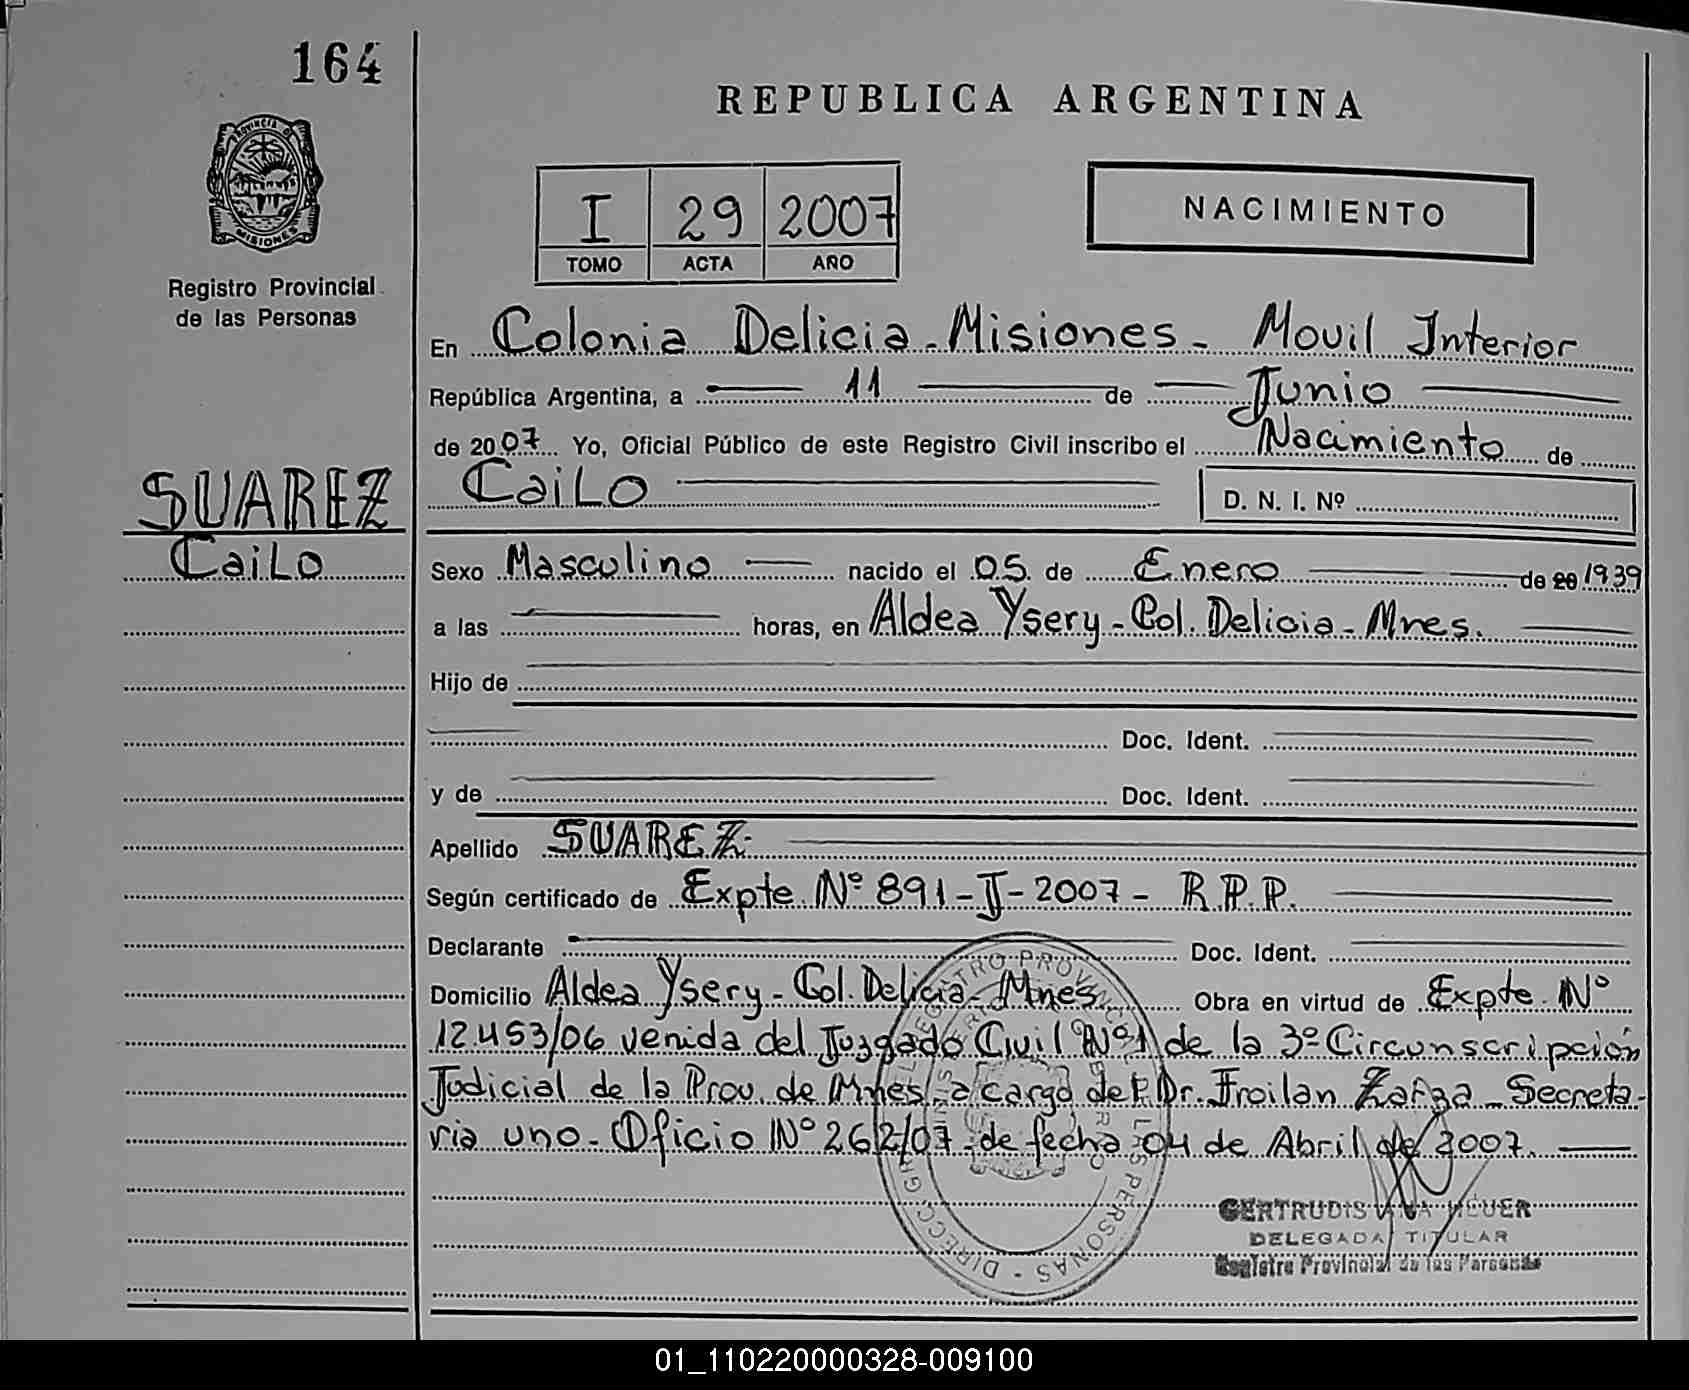 164
PROVINCIA DE
MISIONES
Registro Provincial
de las Personas
SUAREZ
CaiLo
REPUBLICA ARGENTINA
I 29 2007
TOMO ACTA AÑO
NACIMIENTO
En Colonia Delicia - Misiones - Movil Interior
República Argentina, a 11 de Junio
de 2007 Yo, Oficial Público de este Registro Civil inscribo el Nacimiento de
CaiLo D. N. I. Nº
Sexo Masculino nacido el 05 de Enero de 20 1939
a las horas, en Aldea Ysery - Col. Delicia - Mnes.
Hijo de
Doc. Ident.
y de Doc. Ident.
Apellido SUAREZ
Según certificado de Expte Nº 891 - J - 2007 - R.P.P.
Declarante Doc. Ident.
Domicilio Aldea Ysery - Col. Delicia - Mnes Obra en virtud de Expte Nº
12.453/06 venida del Juzgado Civil Nº1 de la 3º Circunscripción
Judicial de la Prov. de Mnes, a cargo del Dr. Froilan Zarza - Secreta-
ria uno - Oficio Nº 262/07 - de fecha 04 de Abril de 2007.
GERTRUDIS HEUER
DELEGADA TITULAR
Registro Provincial de las Personas
01_110220000328-009100